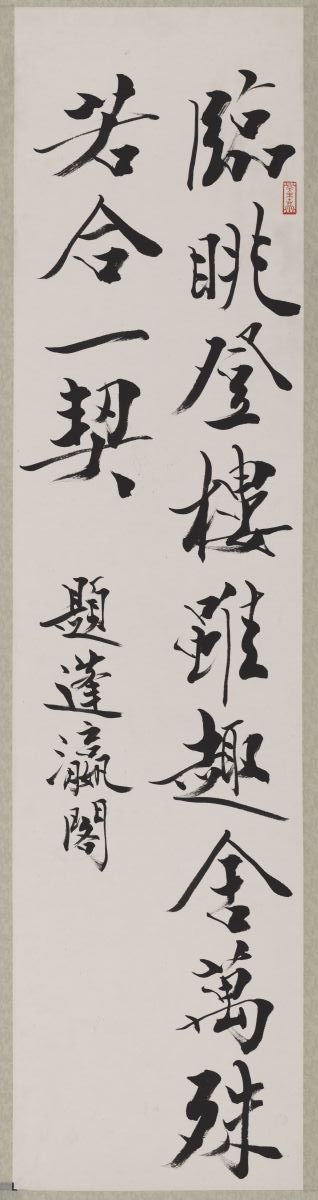 臨眺登樓雖趣舍萬殊
若合一契
題蓬瀛閣